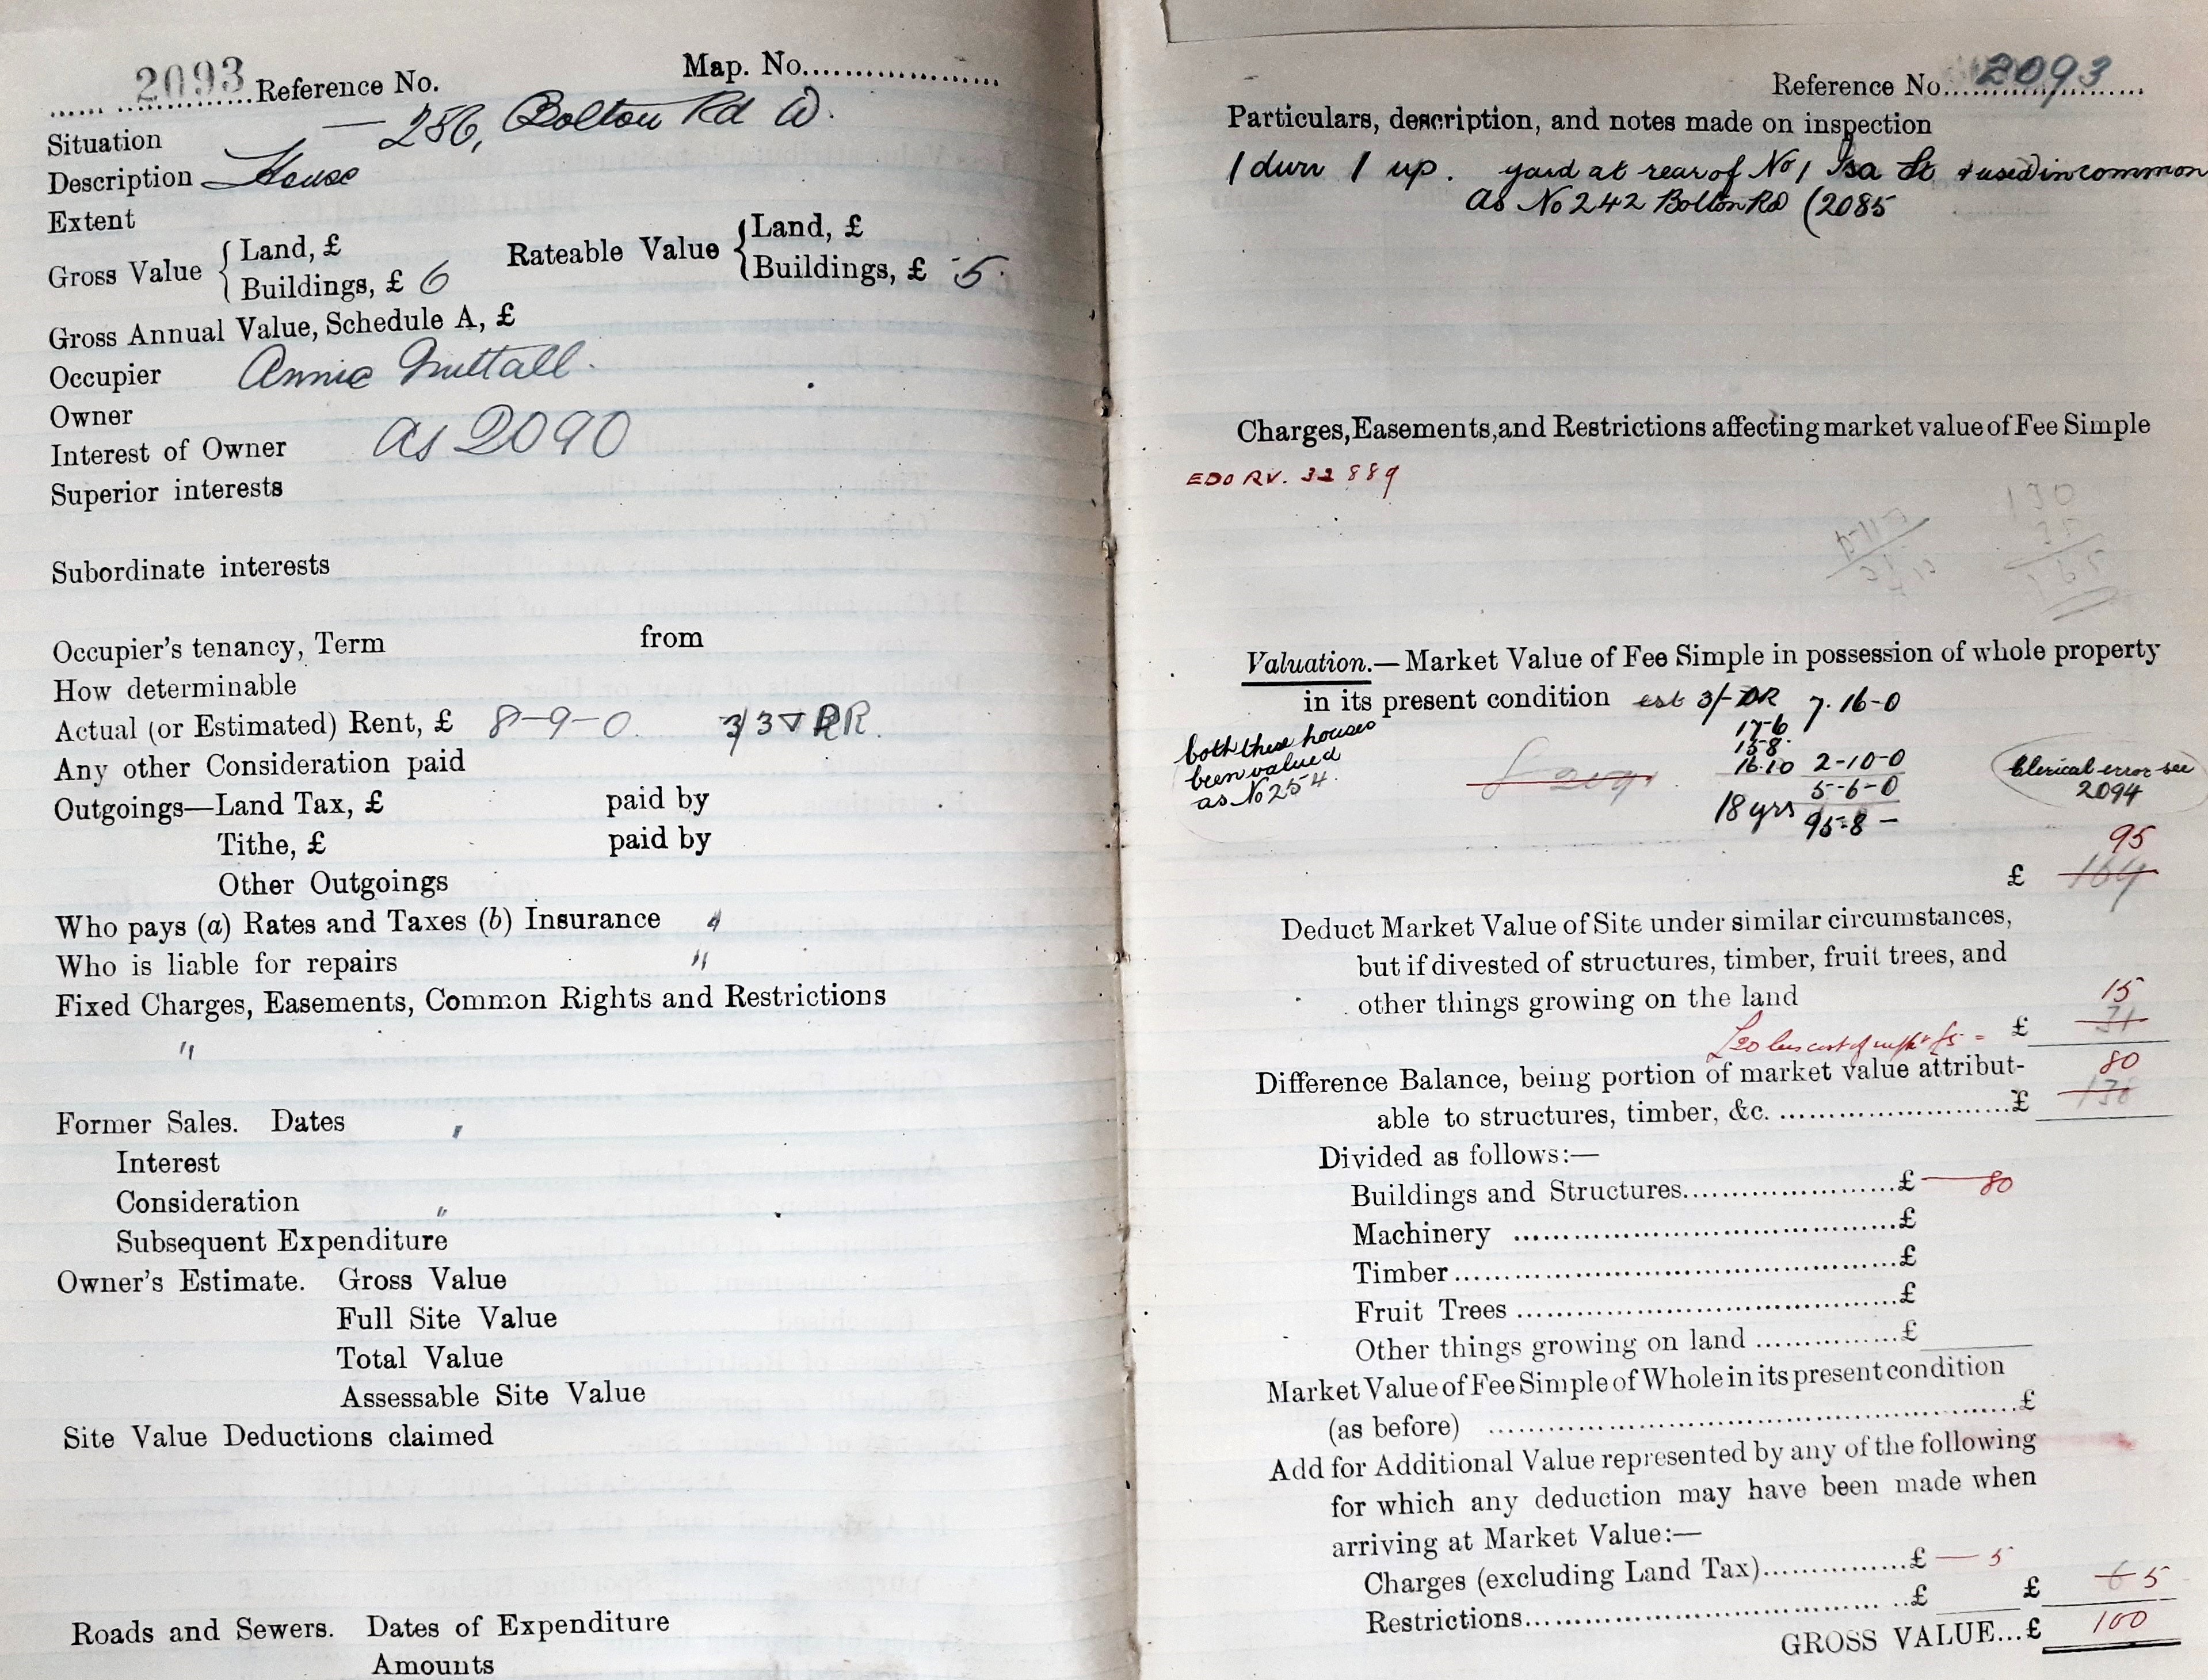 2093 Reference No. Map. No.
Situation — 286, Bolton Rd W.
Description House
Extent
Gross Value { Land, £ Rateable Value { Land, £
Buildings, £ 6 Buildings, £ 5.
Gross Annual Value, Schedule A, £
Occupier Annie Nuttall.
Owner
Interest of Owner as 2090
Superior interests
Subordinate interests
Occupier's tenancy, Term from
How determinable
Actual (or Estimated) Rent, £ 8-9-0. 3/3
Any other Consideration paid
Outgoings—Land Tax, £ paid by
Tithe, £ paid by
Other Outgoings
Who pays (a) Rates and Taxes (b) Insurance "
Who is liable for repairs "
Fixed Charges, Easements, Common Rights and Restrictions
"
Former Sales. Dates "
Interest
Consideration "
Subsequent Expenditure
Owner's Estimate. Gross Value
Full Site Value
Total Value
Assessable Site Value
Site Value Deductions claimed
Roads and Sewers. Dates of Expenditure
Amounts
Reference No. 2093
Particulars, description, and notes made on inspection
1 down 1 up. yard at rear of No 1 Isa St + used in common
as No 242 Bolton Rd (2085
Charges, Easements, and Restrictions affecting market value of Fee Simple
EDO RV. 32889
130
Valuation.—Market Value of Fee Simple in possession of whole property
in its present condition est 3/- DR 7.16-0
both these houses
been valued
as No 254.
17-6
15-8.
16.10 2-10-0
5-6-0
18 yrs 95-8 -
Clerical error see
2094
95
£ 164
Deduct Market Value of Site under similar circumstances,
but if divested of structures, timber, fruit trees, and
other things growing on the land 15
£20 less cost of £5 = £ 31
Difference Balance, being portion of market value attribut- 80
able to structures, timber, &c. £
Divided as follows:—
Buildings and Structures £ — 80
Machinery £
Timber £
Fruit Trees £
Other things growing on land £
Market Value of Fee Simple of Whole in its present condition
(as before) £
Add for Additional Value represented by any of the following
for which any deduction may have been made when
arriving at Market Value:—
Charges (excluding Land Tax) £ — 5
Restrictions £ £ 6 5
GROSS VALUE...£ 100